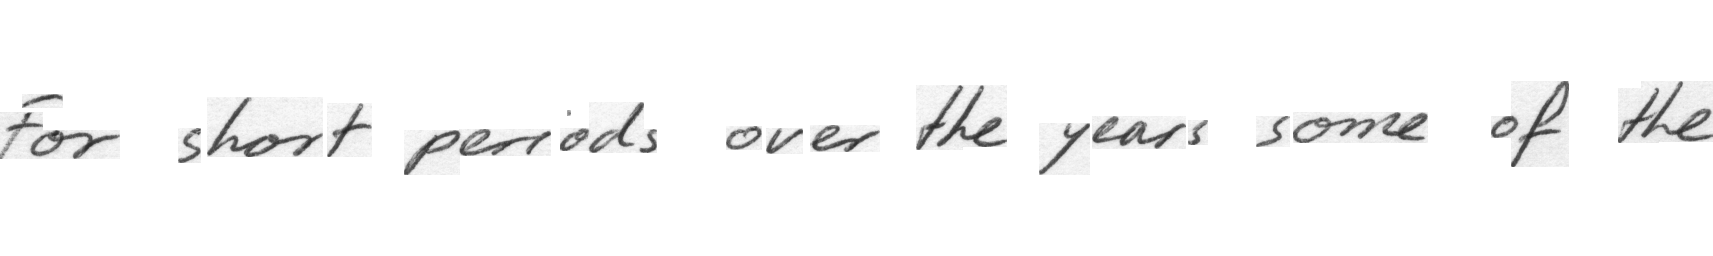 For short periods over the years some of the